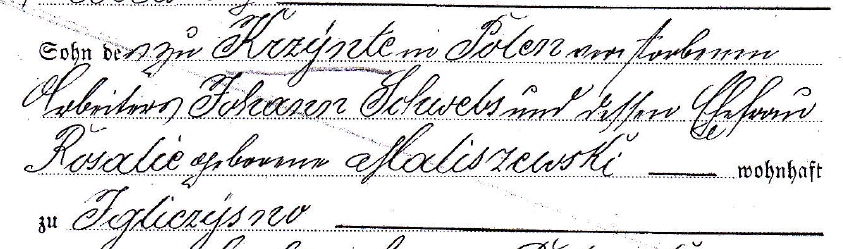 Sohn des zu Krzynte in Polen verstorbenen
Arbeiters Johann Schwebs und dessen Ehefrau
Rosalie geborene Maliszewski wohnhaft
zu Igliczysno